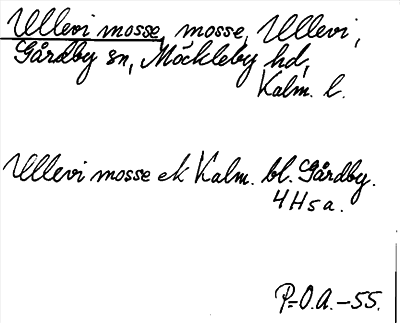 Ullevi mosse, mosse, Ullevi,
Gårdby sn, Möckleby hd,
Kalm. l.
Ullevi mosse ek Kalm. bl. Gårdby.
4 H s a.
P-O.A. -55.